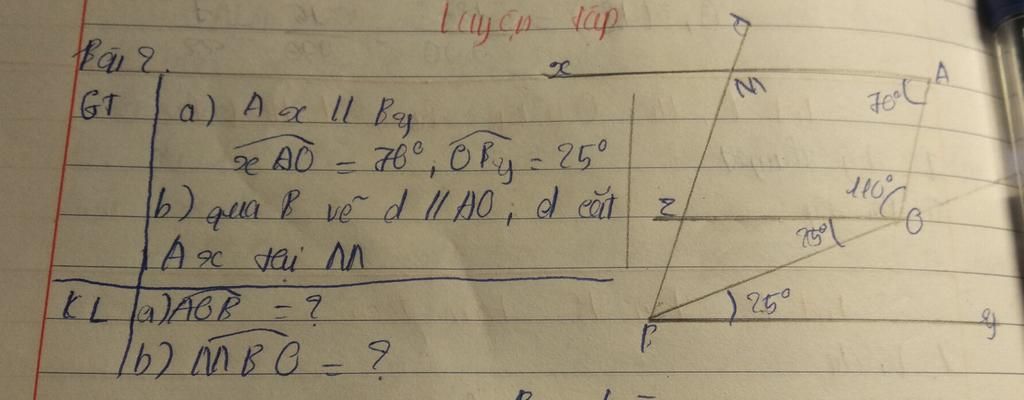 Luyện tập
Bài 2.
GT a) Ax // By
xAO = 70°, OBy = 25°
b) qua B vẽ d // AO, d cắt
Ax tại M
KL a) AOB = ?
b) MBO = ?
d
x M A
70°
110°
z O
25°
25°
B y